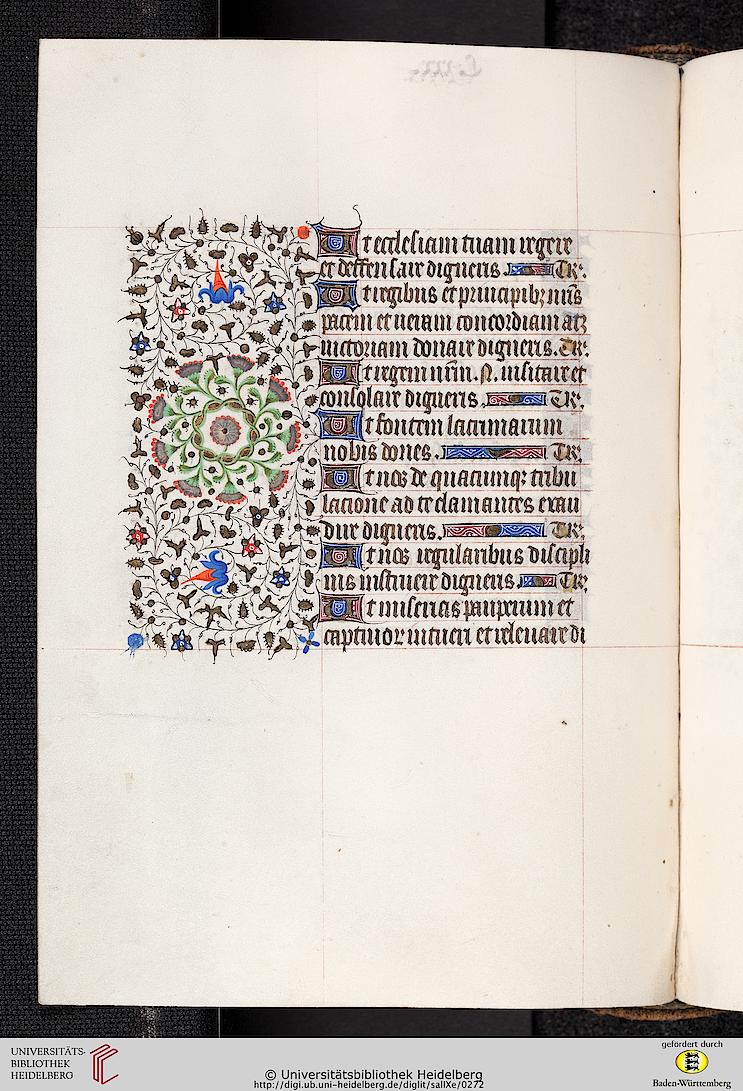 Ut ecclesiam tuam regere
et deffensare digneris. Te r̃.
Ut regibus et principibꝫ nr̃is
pacem et ueram concordiam atqꝫ
uictoriam donare digneris. Te r̃.
Ut regem nr̃m .N. uisitare et
consolare digneris. Te r̃.
Ut fontem lacrimarum
nobis dones. Te r̃.
Ut nos de quacumqꝫ tribu
lacione ad te clamantes exau
dire digneris. Te r̃.
Ut nos regularibus discipli
nis instruere digneris Te r̃.
Ut miserias pauperum et
captiuor intueri et releuare di
UNIVERSITÄTS-
BIBLIOTHEK
HEIDELBERG
© Universitätsbibliothek Heidelberg
http://digi.ub.uni-heidelberg.de/diglit/salIXe/0272
gefördert durch
Baden-Württemberg